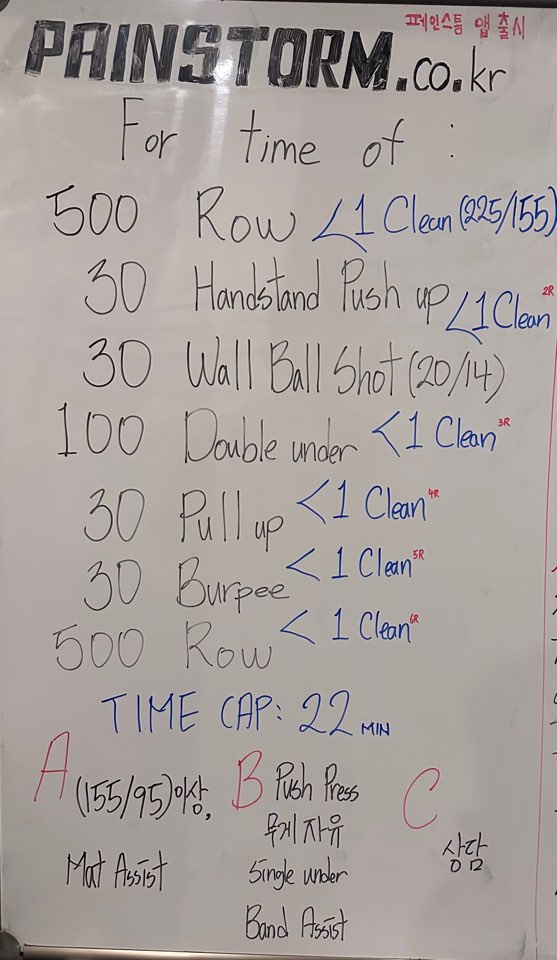 페인스톰 앱 출시
PAINSTORM.co.kr
For time of :
500 Row <1 Clean (225/155)
30 Handstand Push up <1 Clean 2R
30 Wall Ball Shot (20/14)
100 Double under <1 Clean 3R
30 Pull up <1 Clean 4R
30 Burpee <1 Clean 5R
500 Row <1 Clean 6R
TIME CAP: 22 MIN
A (155/95)이상,
Mat Assist
B Push Press
무게 자유
Single under
Band Assist
C
상담